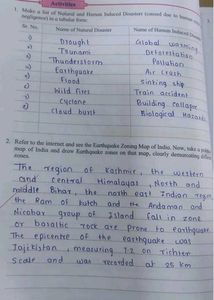 Activities
1. Make a list of Natural and Human Induced Disasters (caused due to human
negligence) in a tabular form:
Sr. No. Name of Natural Disaster Name of Human Induced
1) Drought Global warming
2) Tsunami Deforestation
3) Thunderstorm Pollution
4) Earthquake Air crash
5) Flood Sinking ship
6) Wild fires Train accident
7) Cyclone Building collapse
8) Cloud burst Biological Hazards
2. Refer to the internet and see the Earthquake Zoning Map of India. Now, take a
map of India and draw Earthquake zones on that map, clearly demarcating
zones.
The region of Kashmir, the western
and central Himalayas, North and
middle Bihar, the north east Indian region
the Ram of kutch and the Andaman and
Nicobar group of Island fall in zone
or basaltic rock are prone to earthquake.
The epicentre of the earthquake was
Tajikistan, measuring 7.2 on richter
scale and was recorded at 25 km